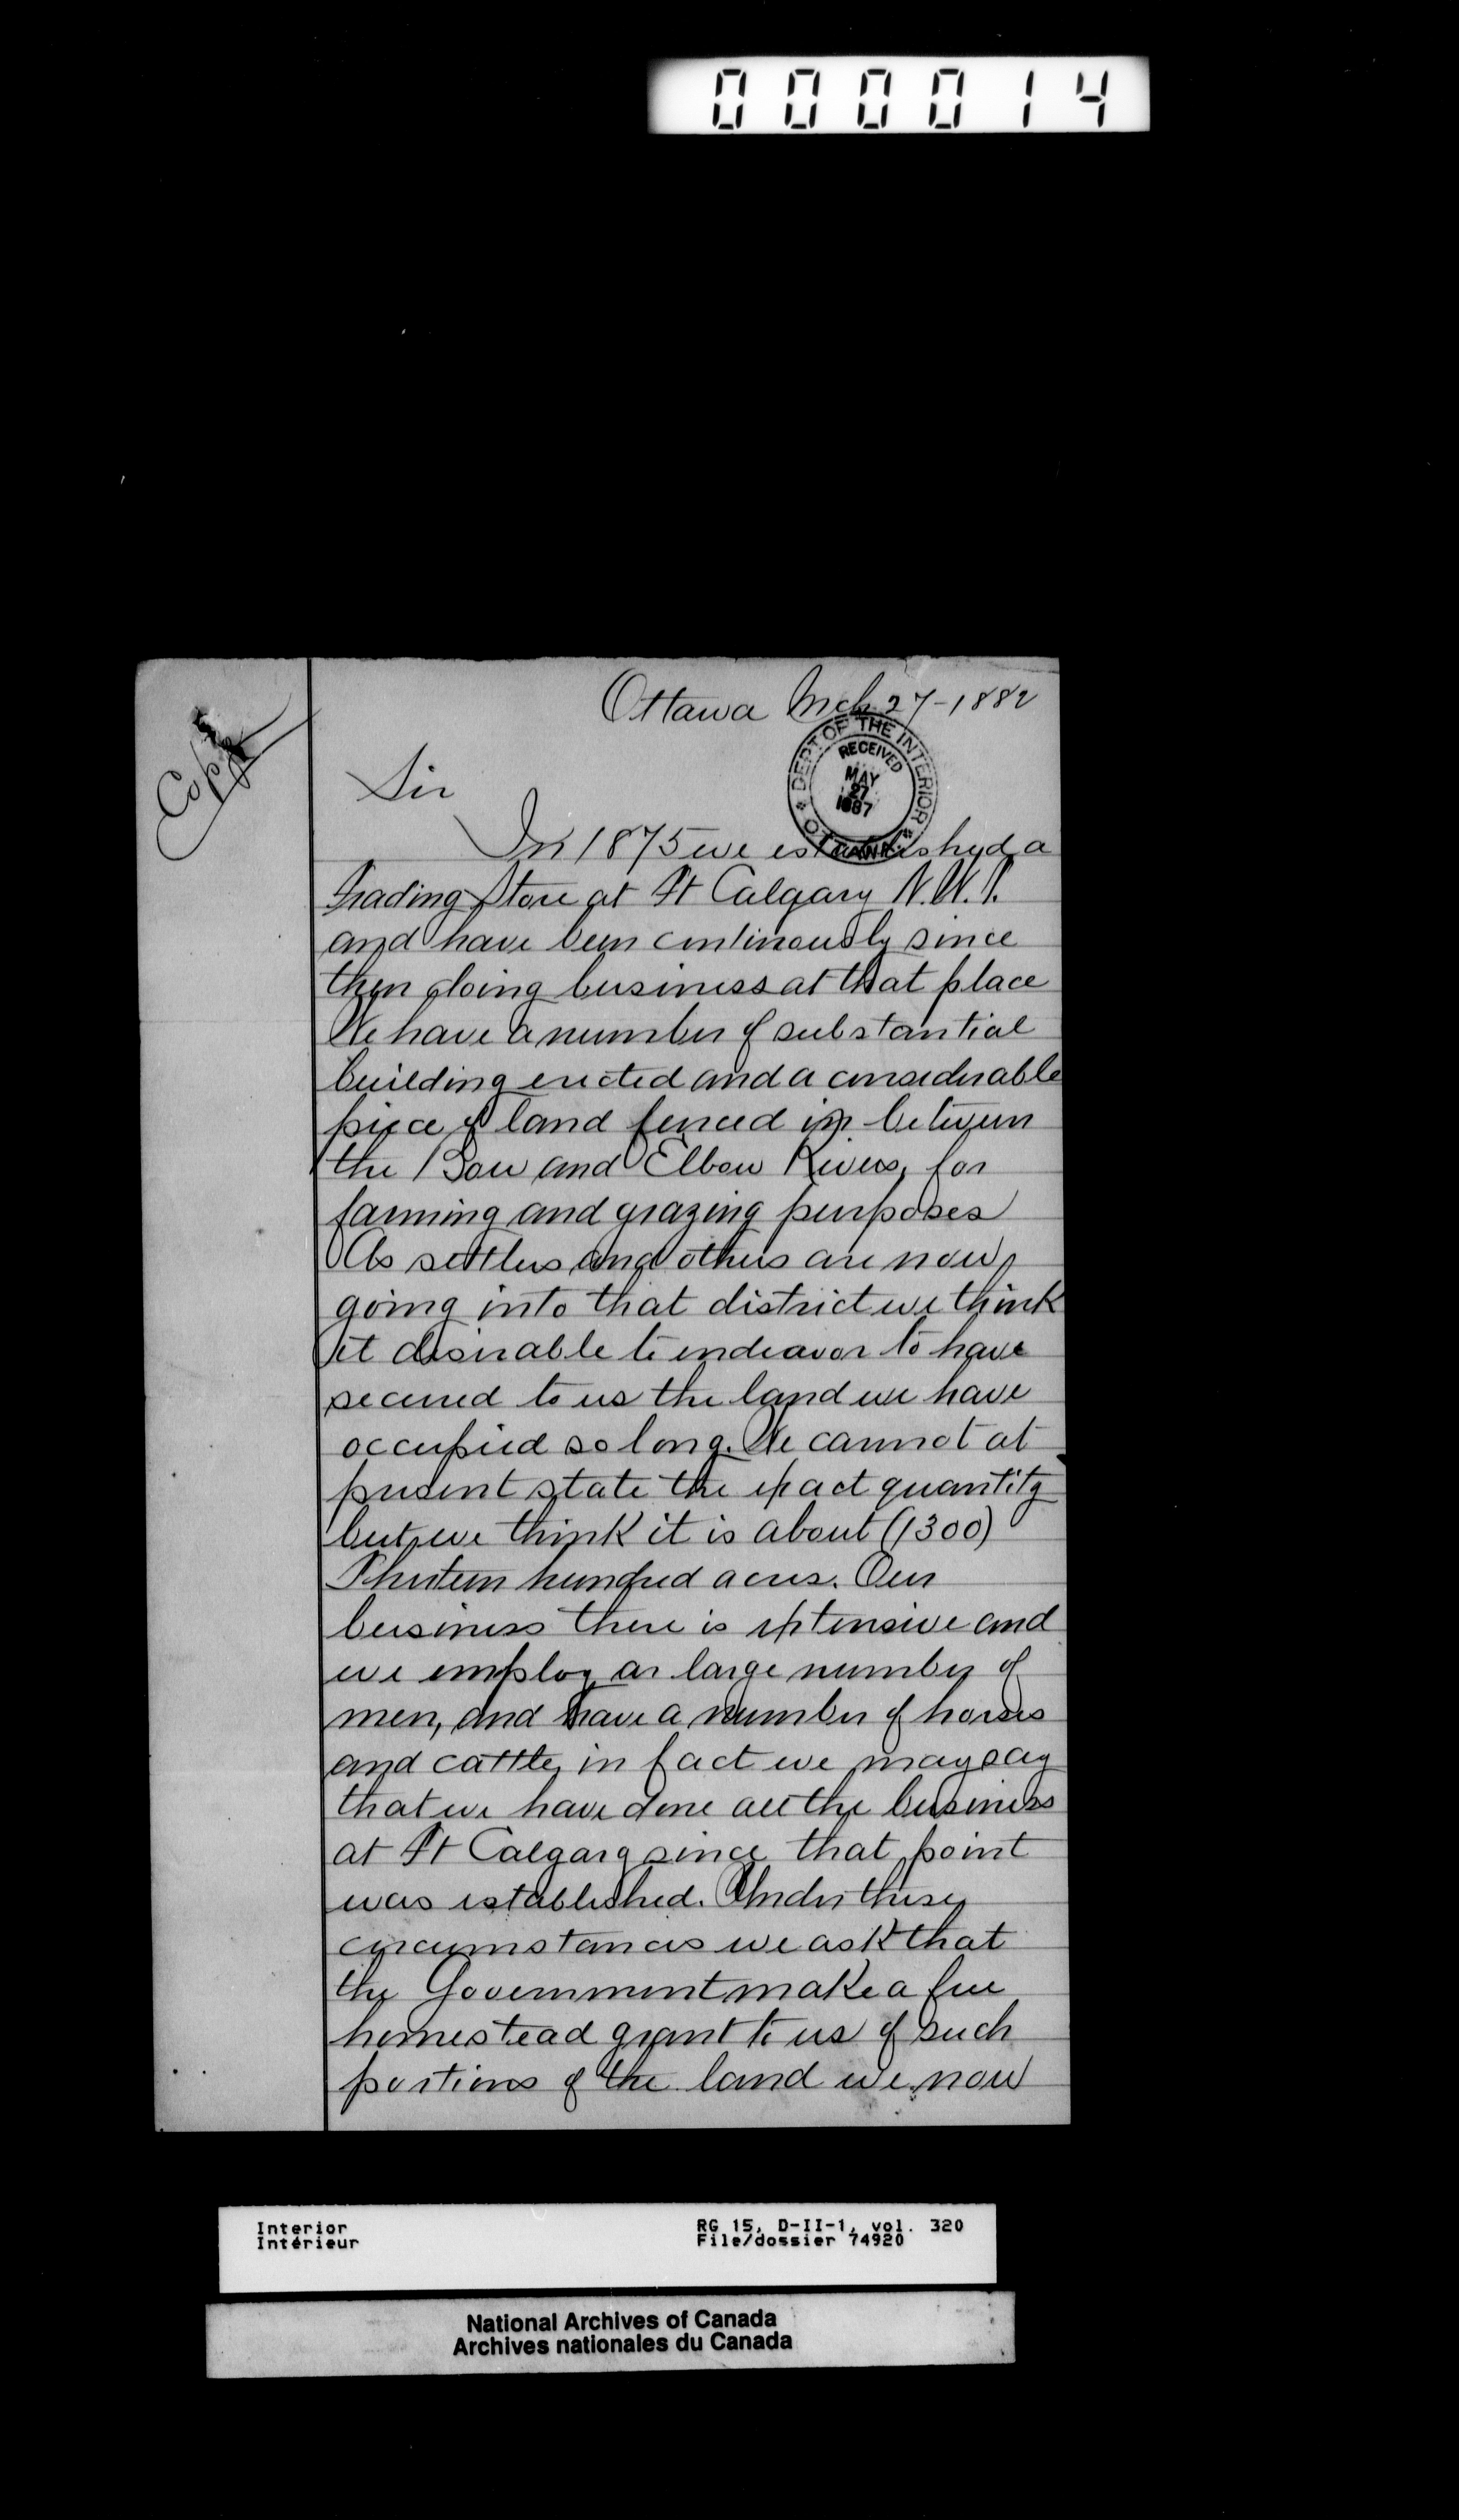 000014
Copy
Ottawa Mch 27-1882
DEPT OF THE INTERIOR
RECEIVED
MAY
27
1887
OTTAWA
Sir
In 1875 we established a
trading store at Ft Calgary N.W.T.
and have been continously since
then doing business at that place
We have a number of substantial
building erected and a considerable
piece of land fenced in between
the Bow and Elbow Rivers, for
farming and grazing purposes
As settlers and others are now
going into that district we think
it desirable to endeavor to have
secured to us the land we have
occupied so long. We cannot at
present state the exact quantity
but we think it is about (1300)
Thirteen hundred acres. Our
business there is extensive and
we employ a large number of
men, and have a number of horses
and cattle, in fact we may say
that we have done all the business
at Ft Calgary since that point
was established. Under these
circumstances we ask that
the Government make a free
homestead grant to us of such
portions of the land we now
Interior
Intérieur
RG 15, D-II-1, vol. 320
File/dossier 74920
National Archives of Canada
Archives nationales du Canada